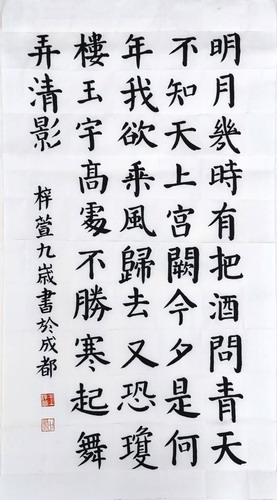 明月幾時有把酒問青天
不知天上宮闕今夕是何
年我欲乘風歸去又恐瓊
樓玉宇高處不勝寒起舞
弄清影
梓萱九歲書於成都